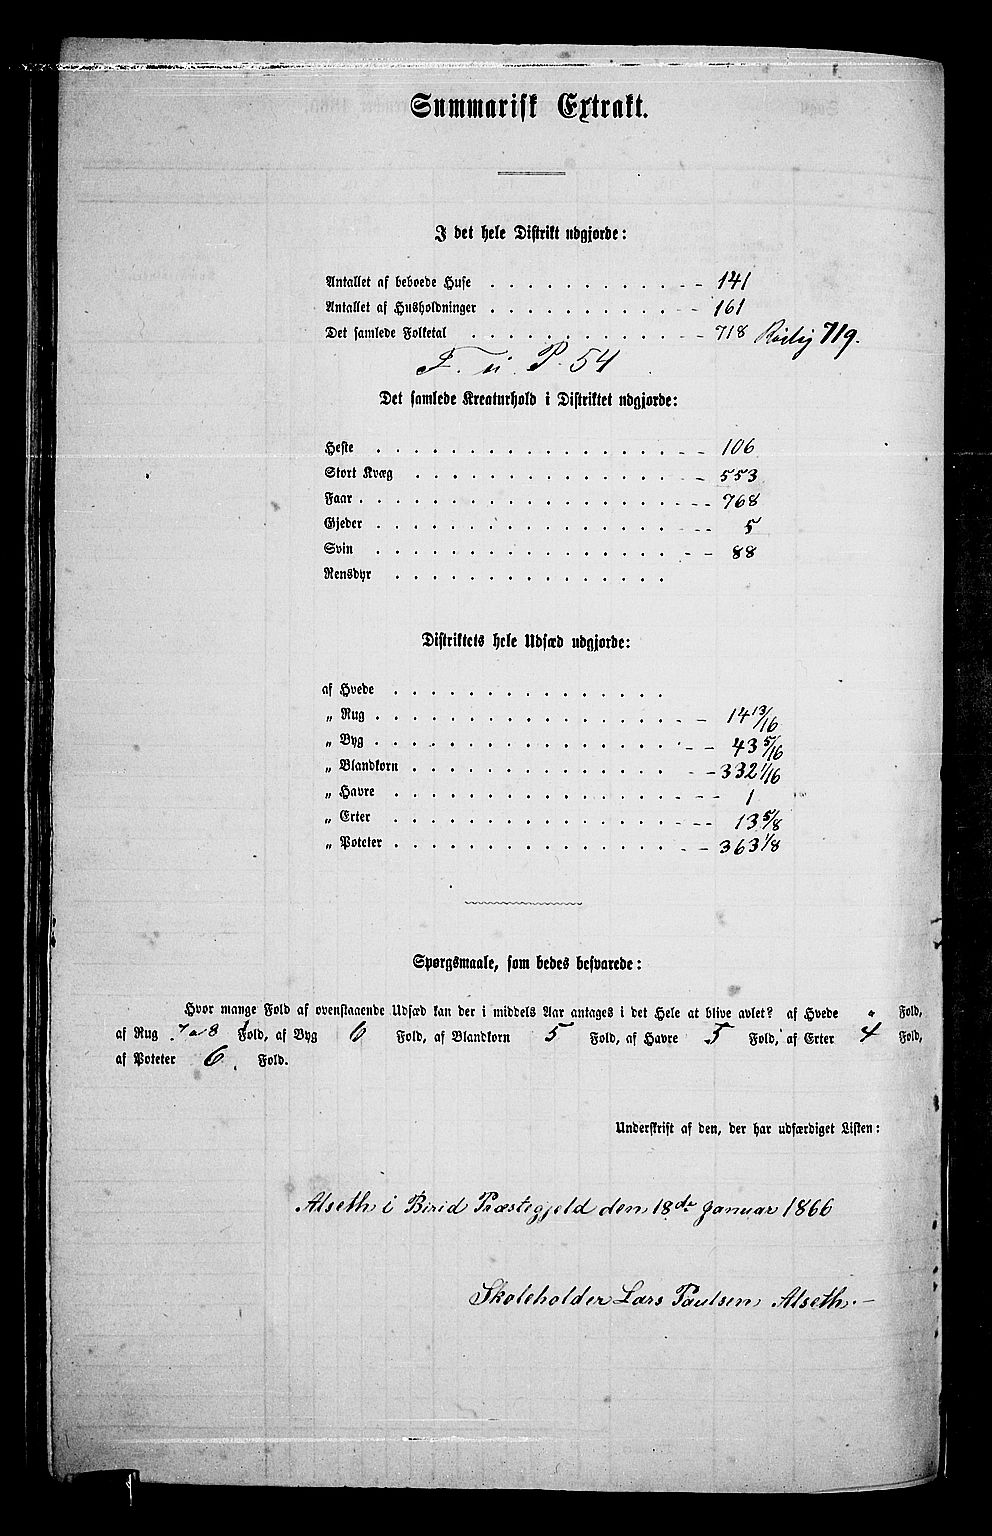 Summarisk Extrakt.
I det hele Distrikt udgjorde:
Antallet af beboede Huse . . . . . . . . . . . -- 141
Antallet af Husholdninger . . . . . . . . . . . -- 161
Det samlede Folketal . . . . . . . . . . . . -- 718 Rigtig 719.
F. u. P. 54
Det samlede Kreaturhold i Distriktet udgjorde:
Heste . . . . . . . . . . . . . . . . -- 106
Stort Kvæg . . . . . . . . . . . . . . -- 553
Faar . . . . . . . . . . . . . . . . . -- 768
Gjeder . . . . . . . . . . . . . . . . -- 5
Svin . . . . . . . . . . . . . . . . -- 88
Rensdyr . . . . . . . . . . . . . . .
Distriktets hele Udsæd udgjorde:
af Hvede . . . . . . . . . . . . . . .
„ Rug . . . . . . . . . . . . . . . . -- 14 13/16
„ Byg . . . . . . . . . . . . . . . . -- 43 5/16
„ Blandkorn . . . . . . . . . . . . . . -- 332 1/16
„ Havre . . . . . . . . . . . . . . . -- 1
„ Erter . . . . . . . . . . . . . . . -- 13 5/8
„ Poteter . . . . . . . . . . . . . . . -- 363 1/8
Spørgsmaale, som bedes besvarede:
Hvor mange Fold af ovenstaaende Udsæd kan der i middels Aar antages i det Hele at blive avlet? af Hvede " Fold,
af Rug 7 a 8 Fold, af Byg 6 Fold, af Blandkorn 5 Fold, af Havre 5 Fold, af Erter 4 Fold,
af Poteter 6. Fold.
Underskrift af den, der har udfærdiget Listen:
Alseth i Birid Præstegjeld den 18de Januar 1866
Skoleholder Lars Paulsen Alseth.—